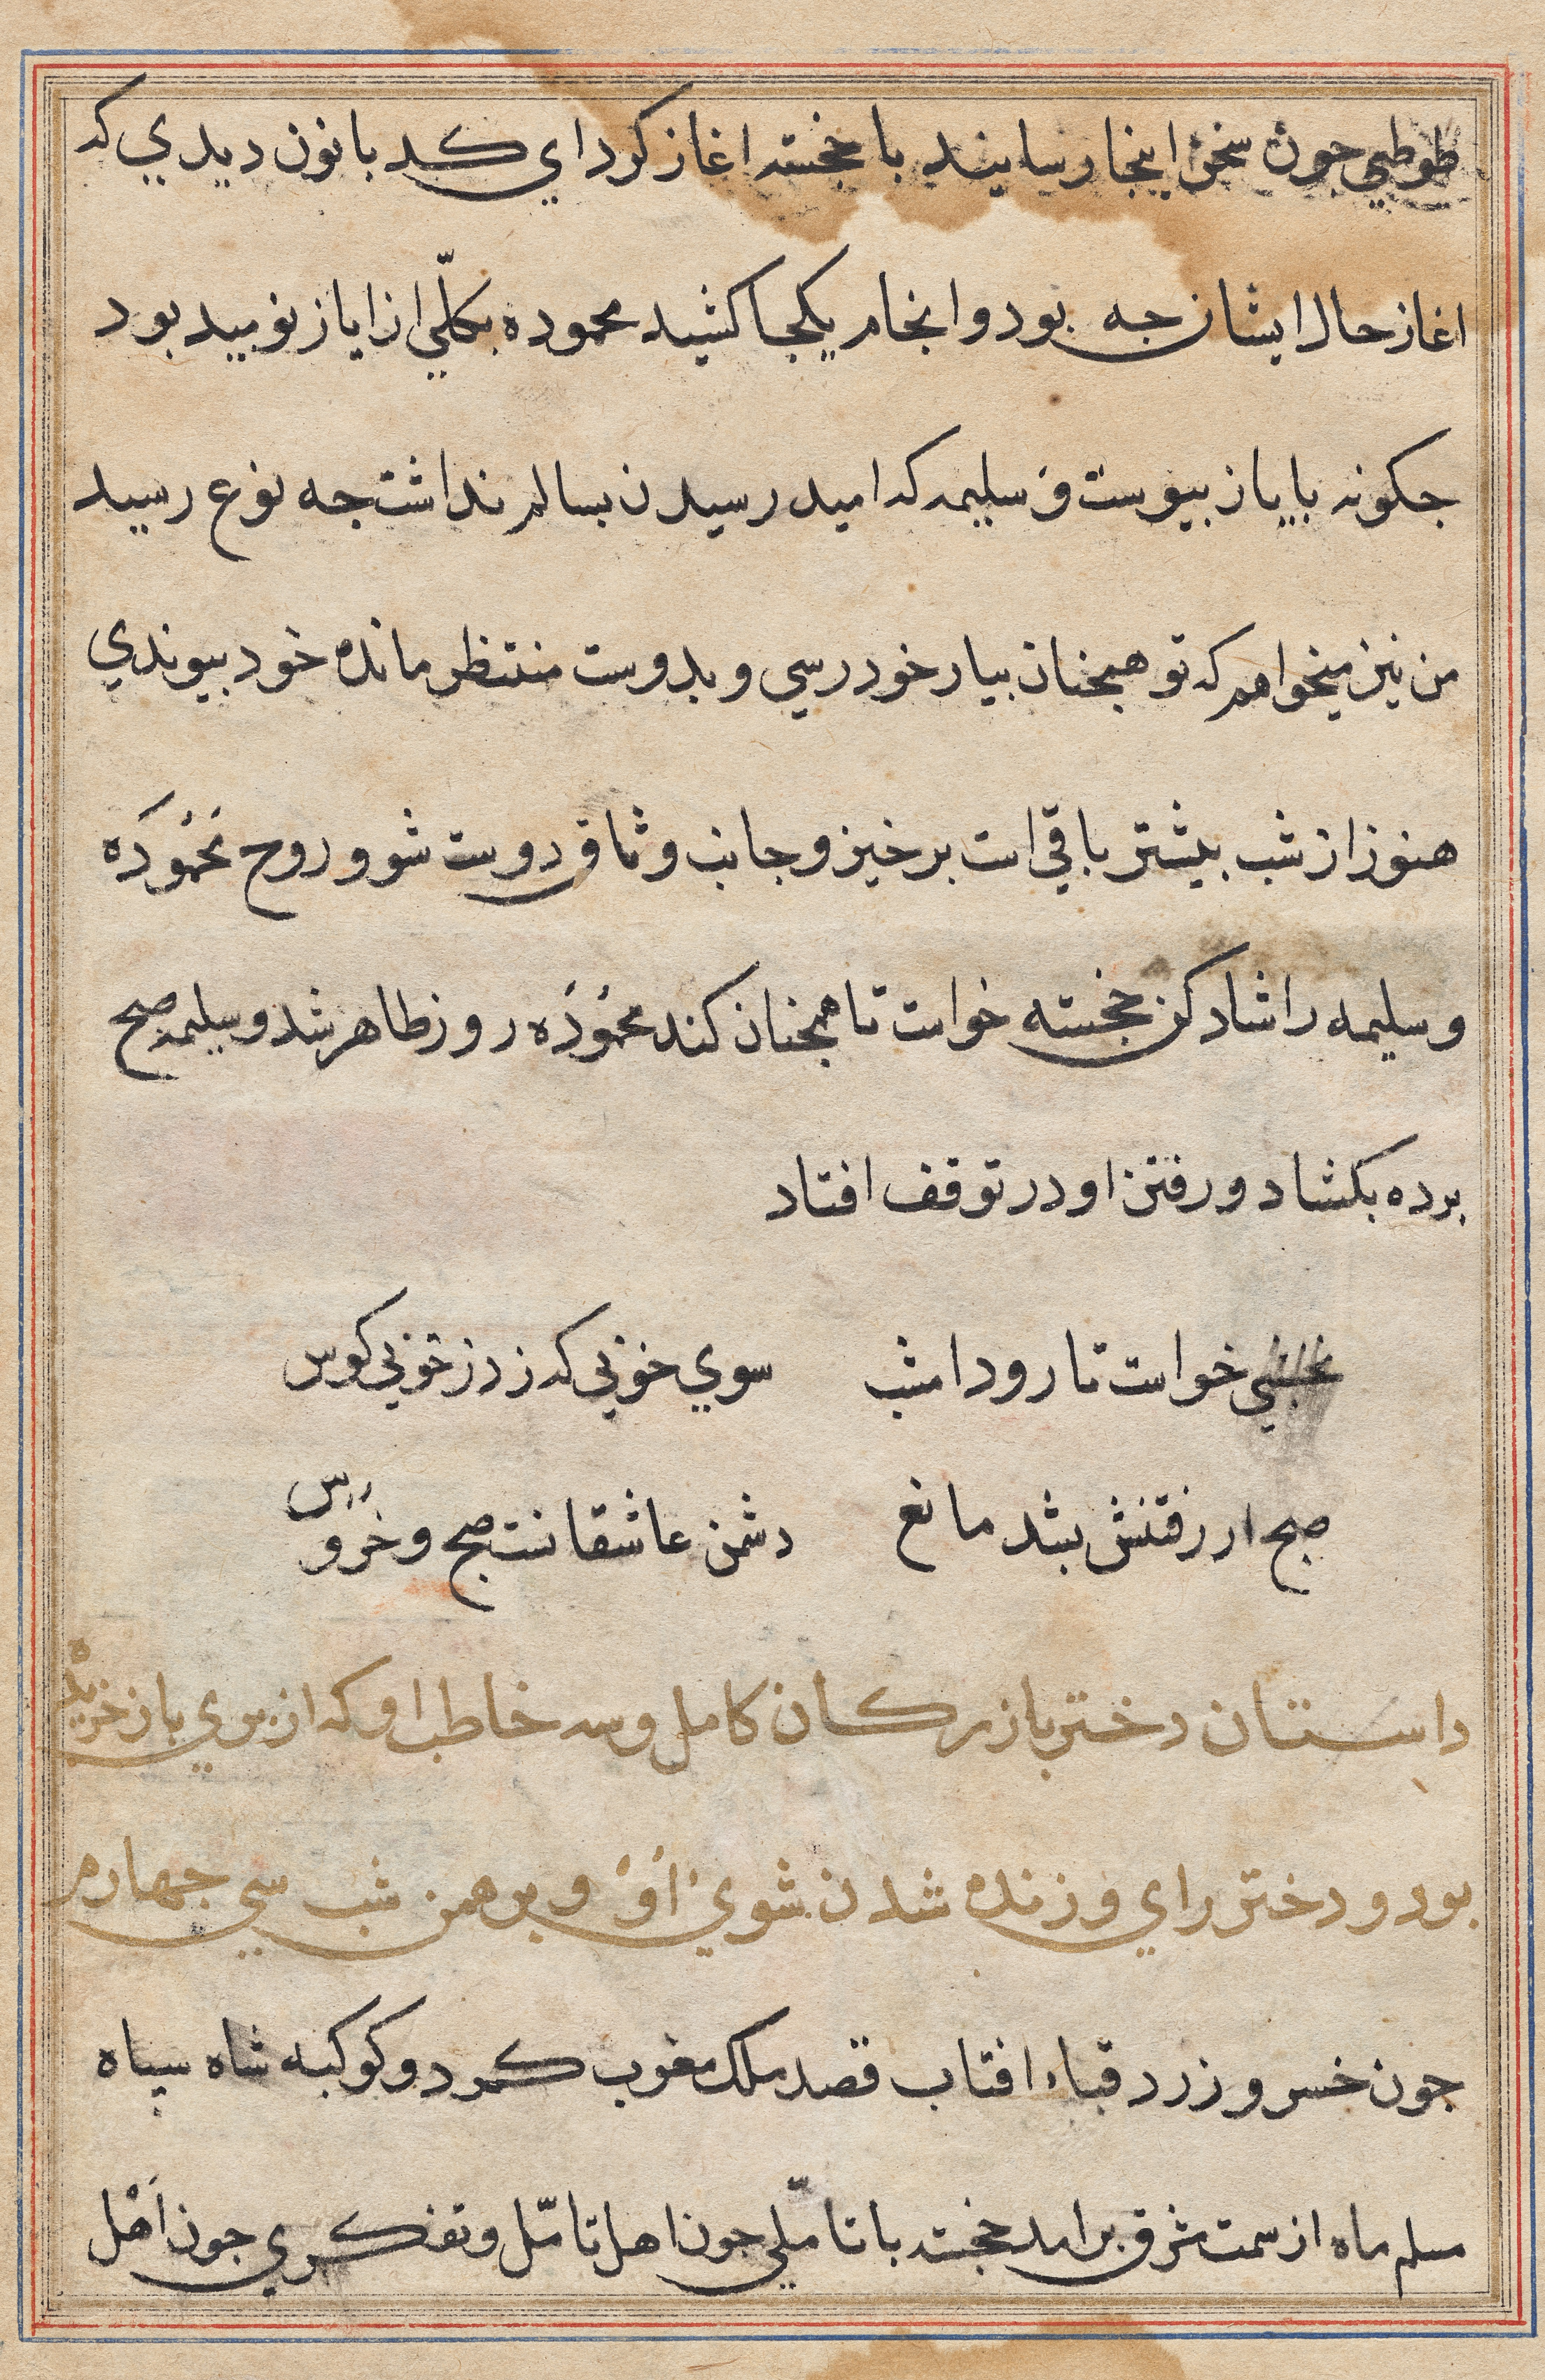 طوطي جون سخن اينجا رسانيد با خجسته اغاز كرد اي كد بانون ديدي كه
اغاز حال ايشان جه بود و انجام بكجا كشيد محموده بكلّي از اياز نوبيد بود
جكونه باياز بيوست و سليمه كه اميد رسيدن بسالم نداشت جه نوع رسيد
من نيز ميخواهم كه تو همجنان بيار خود رسي و بدوست منتظر مانده خود بيوندي
هنوز از شب بيشتر باقي است برخيز و جانب وثاق دوست شو و روح محموده
و سليمه را شاد كن خجسته خواست تا همجنان كند محموده روز ظاهر شد و سليمه صبح
برده بكشاد و رفتن او در توقف افتاد
نخشبي خواست تا رود امشب سوي خوبي كه زد ز خوبي كوس
صبح از رفتنش بشد مانع دشمن عاشقانست صبح و خروس
داستان دختر بازركان كامل و سه خاطب او كه از بري باز خريده
بود و دختر راي و زنده شدن شوي او و برهمن شب سي جهارم
جون خسرو زرد قباء افتاب قصد ملك مغرب كرد و كوكبه شاه سياه
سلم ماه از سمت مشرق برامد خجسته با تاملّي جون اهل تامّل و تفكري جون اهل